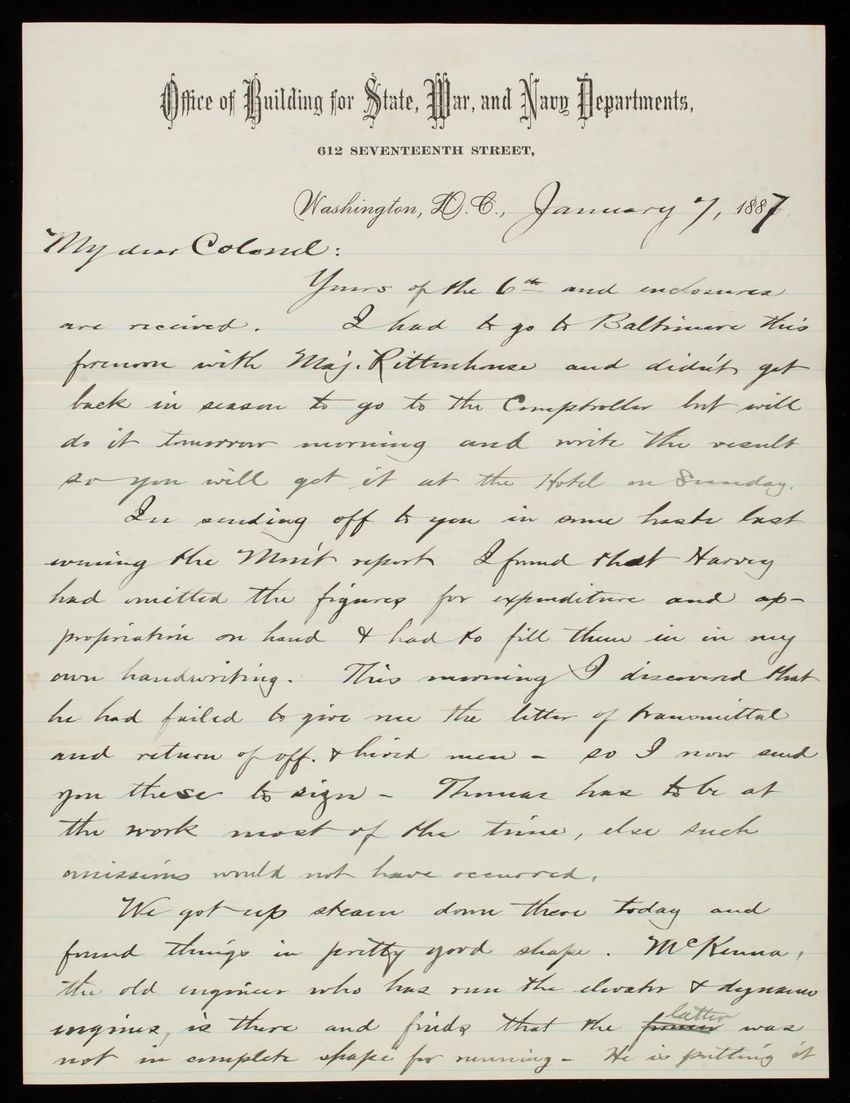 Office of Building for State, War, and Navy Departments,
612 SEVENTEENTH STREET,
Washington, D.C., January 7, 1887.
My dear Colonel:
Yours of the 6th and enclosures
are received. I had to go to Baltimore this
forenoon with Maj. Rittenhouse and didn't get
back in season to go to the Comptroller but will
do it tomorrow morning and write the result
so you will get it at the Hotel on Sunday.
In sending off to you in some haste last
evening the Mon't report I found that Harvey
had omitted the figures for expenditure and ap-
propriation on hand & had to fill them in in my
own handwriting. This morning I discovered that
he had failed to give me the letter of transmittal
and return of off. & hired men - so I now send
you these to sign - Thomas has to be at
the work most of the time, else such
omissions would not have occurred.
We got up steam down there today and
found things in pretty good shape. McKenna,
the old engineer who has run the elevator & dynamo
engines, is there and finds that the former latter was
not in complete shape for running - He is putting it